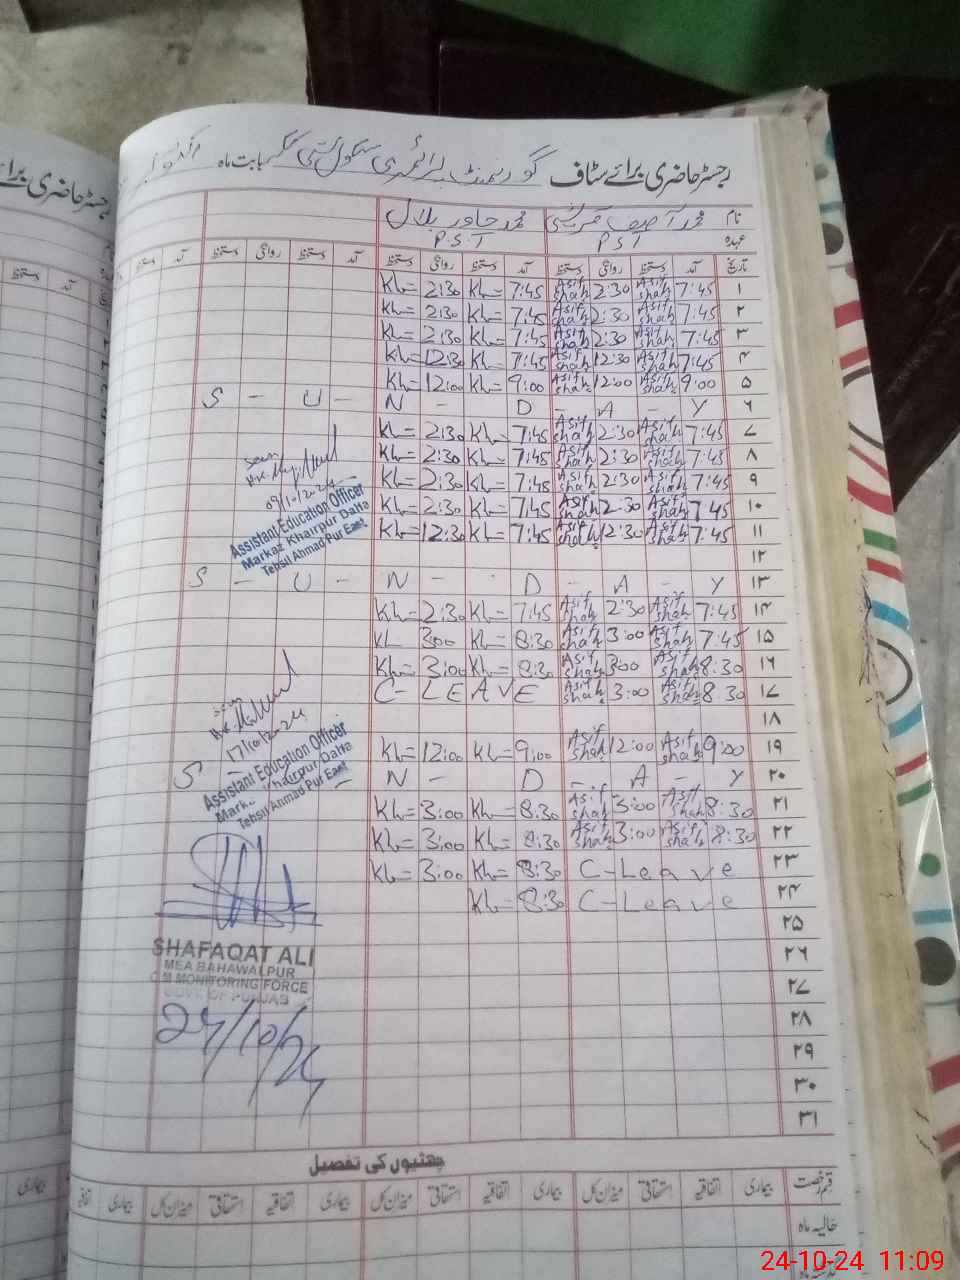 رجسٹر حاضری برائے سٹاف گورنمنٹ پرائمری سکول بستی بابت ماہ اکتوبر
نام محمد آصف محمد خاور بلال
عہدہ PST P.S.T
تاریخ آمد دستخط روانگی دستخط آمد دستخط روانگی دستخط آمد دستخط روانگی دستخط آمد دستخط
۱ 7:45 Asif shah 2:30 Asif shah 7:45 Kh= 2:30 Kh=
۲ 7:45 Asif shah 2:30 Asif shah 7:45 Kh= 2:30 Kh=
۳ 7:45 Asif shah 2:30 Asif shah 7:45 Kh= 2:30 Kh=
۴ 7:45 Asif shah 12:30 Asif shah 7:45 Kh= 12:30 Kh=
۵ 9:00 Asif shah 12:00 Asif shah 9:00 Kh= 12:00 Kh=
۶ S - U - N - D - A - Y
۷ 7:45 Asif shah 2:30 Asif shah 7:45 Kh= 2:30 Kh=
۸ 7:45 Asif shah 2:30 Asif shah 7:45 Kh= 2:30 Kh=
۹ 7:45 Asif shah 2:30 Asif shah 7:45 Kh= 2:30 Kh=
۱۰ 7:45 Asif shah 2:30 Asif shah 7:45 Kh= 2:30 Kh=
۱۱ 7:45 Asif shah 12:30 Asif shah 7:45 Kh= 12:30 Kh=
۱۲
۱۳ S - U - N - D - A - Y
۱۴ 7:45 Asif shah 2:30 Asif shah 7:45 Kh= 2:30 Kh=
۱۵ 7:45 Asif shah 3:00 Asif shah 8:30 Kh= 3:00 KL
۱۶ 8:30 Asif shah 3:00 Asif shah 8:30 Kh= 3:00 Kh=
۱۷ 8:30 Asif shah 3:00 Asif shah C-LEAVE
۱۸
۱۹ 9:00 Asif shah 12:00 Asif shah 9:00 Kh= 12:00 Kh=
۲۰ S N - D - A - Y
۲۱ 8:30 Asif shah 3:00 Asif shah 8:30 Kh= 3:00 Kh=
۲۲ 8:30 Asif shah 3:00 Asif shah 8:30 Kh= 3:00 Kh=
۲۳ C-Leave 8:30 Kh= 3:00 Kh=
۲۴ C-Leave 8:30 Kh=
۲۵
۲۶
۲۷
۲۸
۲۹
۳۰
۳۱
Seen
09/10/2024
Assistant Education Officer
Markaz Khairpur Daha
Tehsil Ahmad Pur East
Seen
17/10/2024
Assistant Education Officer
Markaz Khairpur Daha
Tehsil Ahmad Pur East
SHAFAQAT ALI
MEA BAHAWALPUR
C.M MONITORING FORCE
GOVT. OF PUNJAB
24/10/24
چھٹیوں کی تفصیل
قسم رخصت بیماری اتفاقیہ استحقاقی میزان کل بیماری اتفاقیہ استحقاقی میزان کل بیماری اتفاقیہ استحقاقی میزان کل بیماری
حالیہ ماہ
24-10-24 11:09